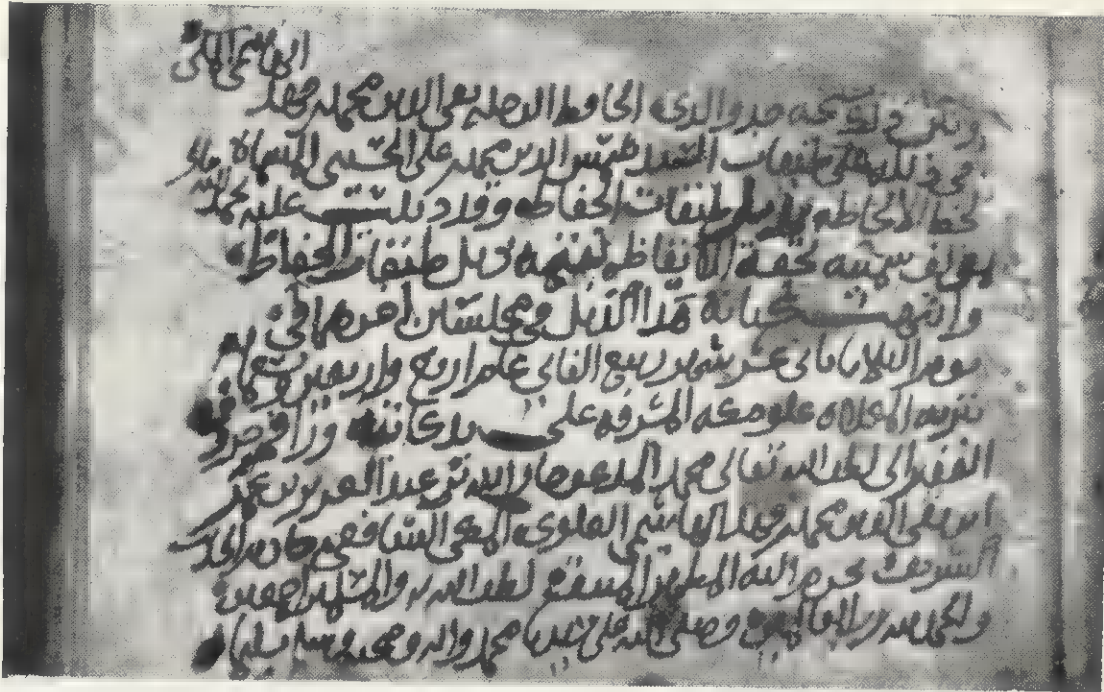 ابن فهد الهاشمي المكي
جد والدي الحافظ تقي الدين محمد بن فهد
في ذيله على طبقات السيد شمس الدين محمد بن علي الحسيني المسماة
لحظ الألحاظ بذيل طبقات الحفاظ وقد ذيلت عليه بحمد الله
بمؤلف سميته تحفة الأيقاظ بتتمة ذيل طبقات الحفاظ
وانتهت كتابة هذا الذيل في مجلسين آخرهما في
يوم الثلاثاء ثاني عشر شهر ربيع الثاني عام اربع واربعين وتسعمائة
بتربة المعلاة علو مكة المشرفة على يد كاتبه
الفقير الى لطف الله تعالى محمد المدعو جار الله بن عبد العزيز بن عمر
ابن تقي الدين محمد بن فهد الهاشمي العلوي المكي الشافعي خادم الحديث
الشريف بحرم الله المطهر المنيف لطف الله به والمسلمين اجمعين
والحمد لله رب العالمين وصلى الله على سيدنا محمد واله وصحبه وسلم تسليما